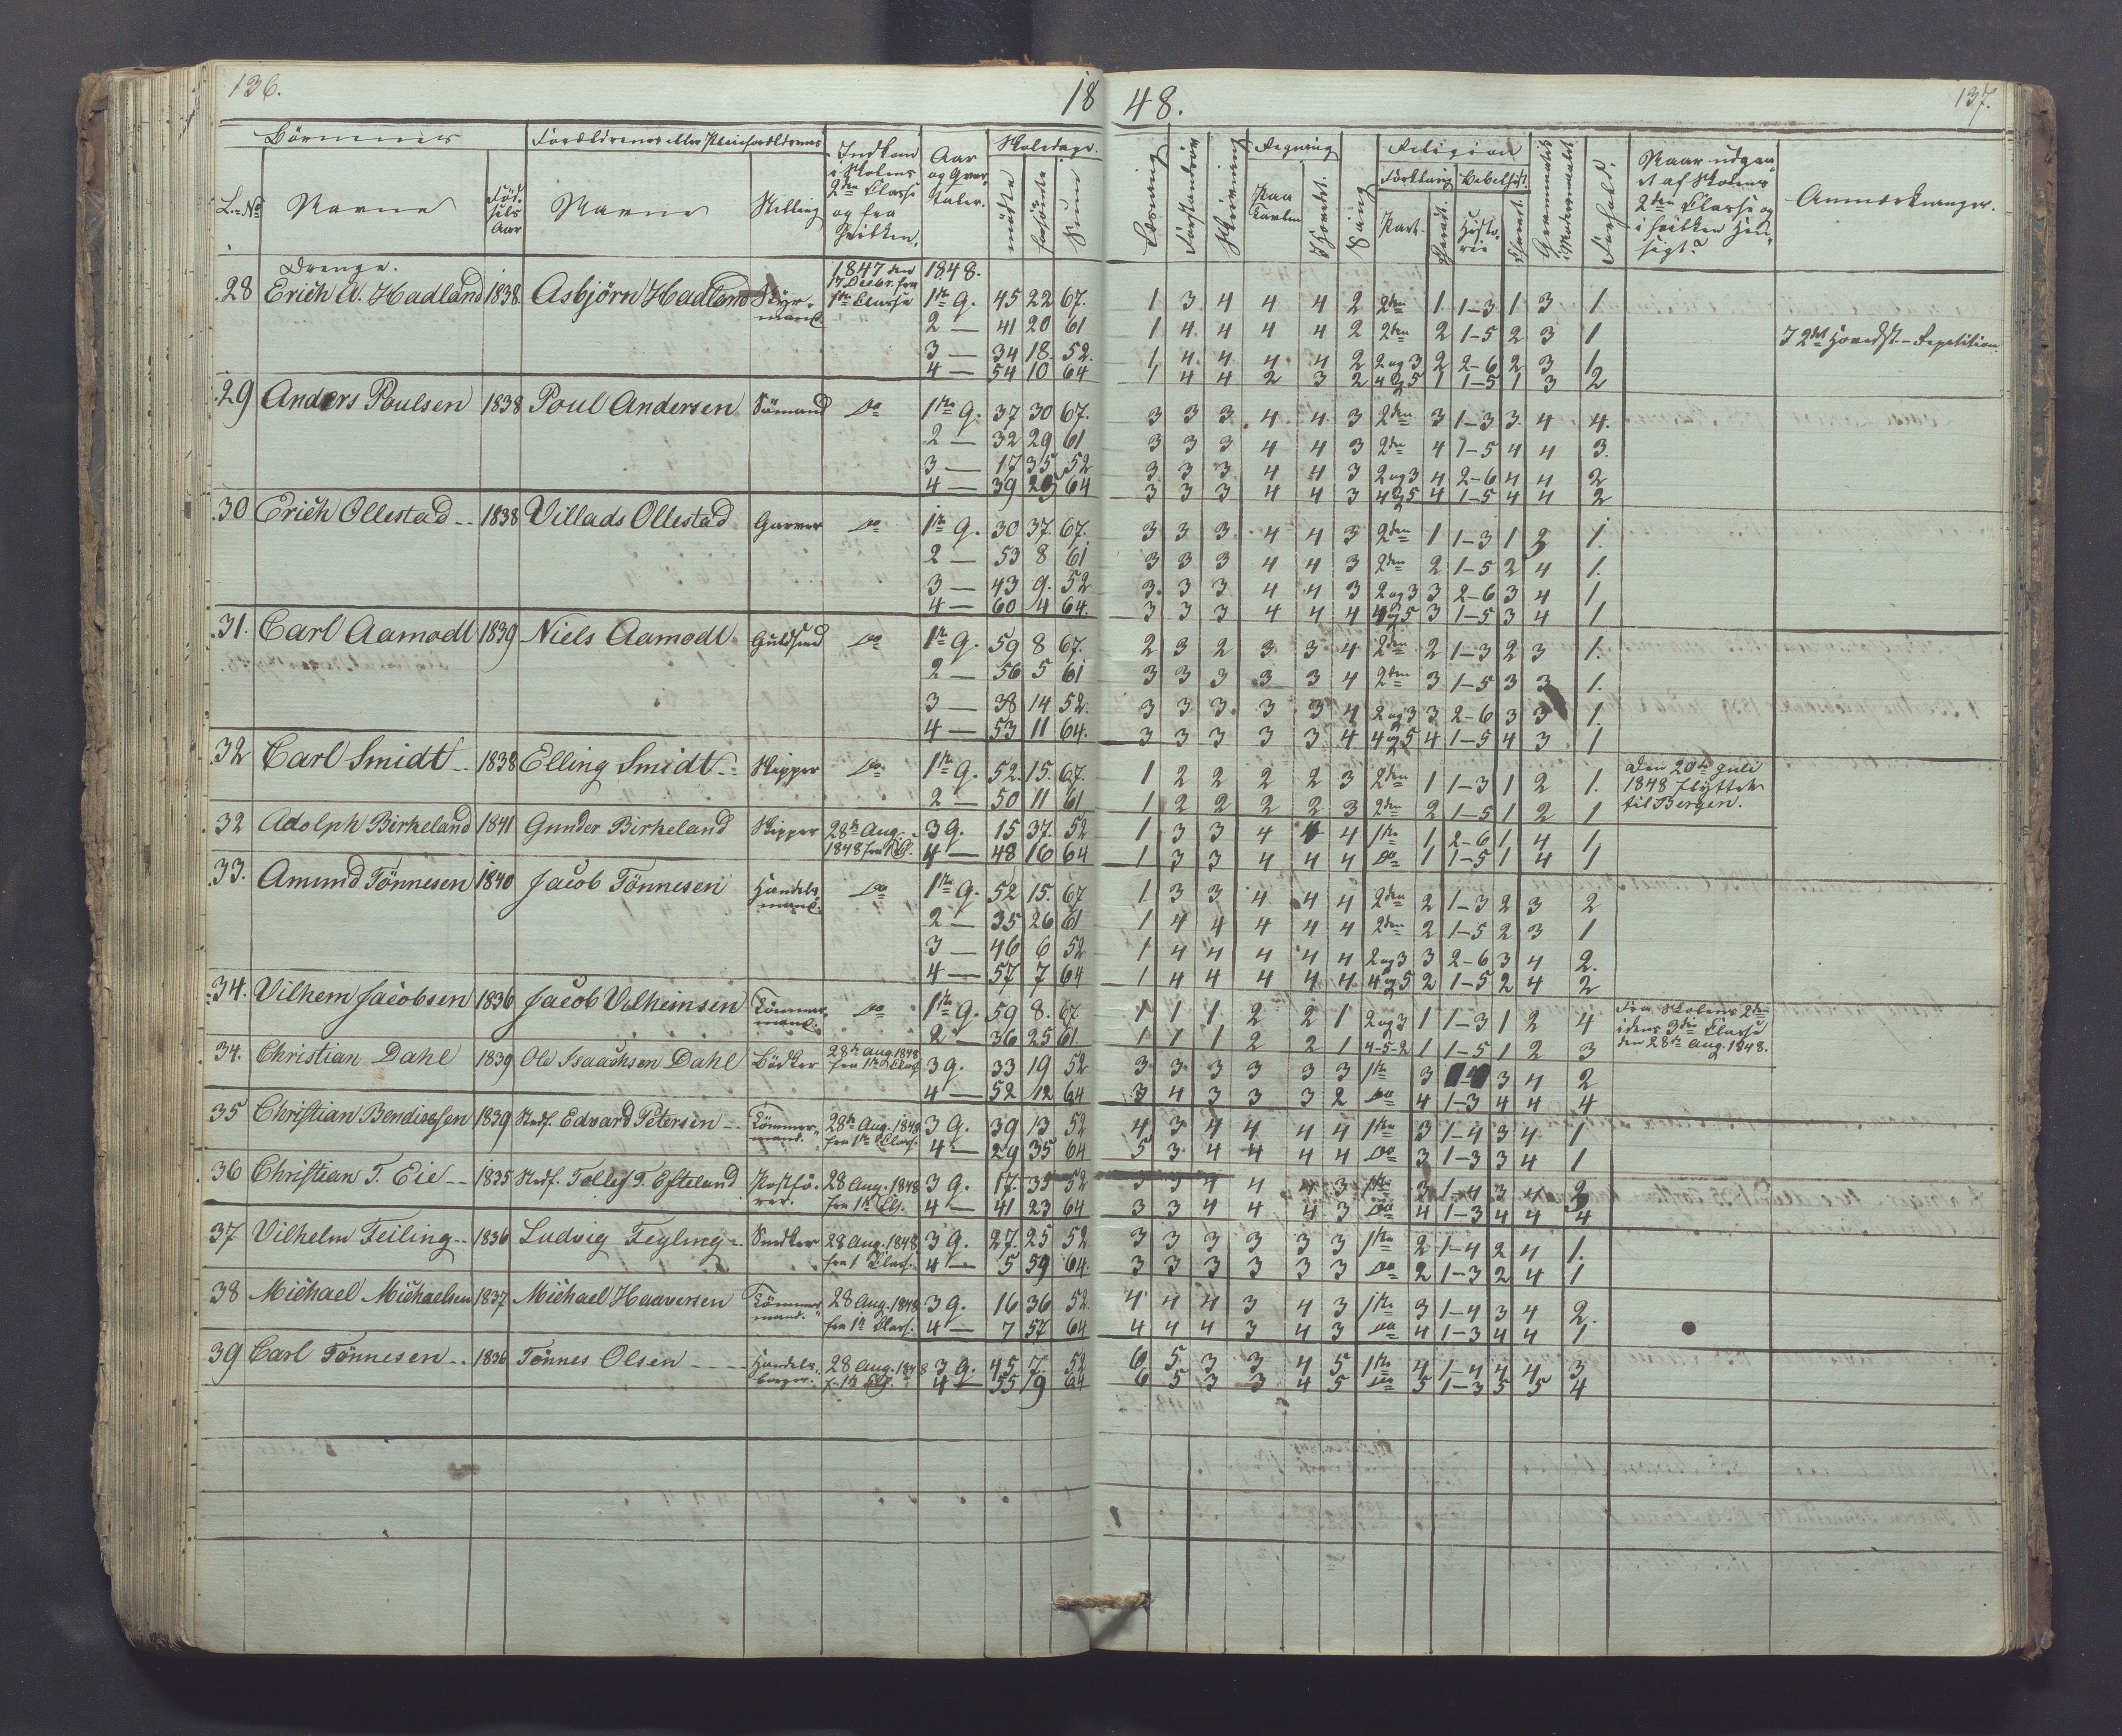 136.
18
48.
137.
Börnenes
Forældrenes eller Pleieforældrenes
Indkom i Skolens 2den Classe og fra hvilken.
Aar og Qvartaler.
Skoledage.
L. No
Navne
Födselsaar
Navne
Stilling
mödte
forsömte
Sum
Læsning
Forstandsöv
Skrivning
Regning
Paa Tavlen
Hovedr.
Sang
Religion
Forklaring
Bibelhist.
Part.
Færd.
Historie
Færd.
Grammatik i Modersmaalet
Forhold.
Naar udgaaet af Skolens 2den Classe og i hvilken Hensigt?
Anmærkninger.
Drenge.
28 Erich A. Hadland 1838. Asbjörn Hadland Styrmand 1847 den 17 Decbr. fra 1ste Classe 1848. 1ste Q. 45 22 67. 1 3 4 4 4 2 2den 1 1-3 1 3 1
2 — 41 20 61 1 4 4 4 4 2 2den 2 1-5 2 3 1 I 2det Hovedst. - Repetition
3 — 34 18. 52. 1 4 4 4 4 2 2 og 3 2 2-6 2 3 1
4 — 54 10 64 1 4 4 2 3 2 4 og 5 1 1-5 1 3 2
29 Anders Poulsen 1838 Poul Andersen Sömand Do 1ste Q. 37 30 67. 3 3 3 4 4 3 2den 3 1-3 3 4 4.
2 — 32 29 61 3 3 3 4 4 3 2den 4 1-5 4 4 3.
3 — 17 35 52 3 3 3 4 4 3 2 og 3 4 2-6 4 4 2
4 — 39 25 64 3 3 3 4 4 3 4 og 5 4 1-5 4 4 2
30 Erich Ollestad 1838 Villads Ollestad Garver Do 1ste Q. 30 37. 67. 3 3 3 4 4 3 2den 1 1-3 1 3 1.
2 — 53 8 61 3 3 3 4 4 3 2den 2 1-5 2 4 1.
3 — 43 9. 52 3 3 3 4 4 3 2 og 3 3 2-6 3 4 1
4 — 60 4 64. 3 3 3 4 4 4 4 og 5 3 1-5 3 4 1
31. Carl Aamodt 1839 Niels Aamodt Guldsmed Do 1ste Q. 59 8 67. 2 3 2 3 3 4 2den 2 1-3 2 3 1.
2 — 56 5 61 3 3 3 3 3 4 2den 3 1-5 3 3 1.
3 — 38 14 52. 3 3 3 3 3 4 2 og 3 3 2-6 3 3 1.
4 — 53 11 64. 3 3 3 3 3 4 4 og 5 4 1-5 4 3 1
32 Carl Smidt 1838 Elling Smidt Skipper Do 1ste Q. 52. 15. 67. 1 2 2 2 2 3 2den 1 1-3 1 2 1. Den 20de Juli 1848 flyttet til Bergen.
2 — 50 11 61 1 2 2 2 2 3 2den 2 1-5 1 2 1
32 Adolph Birkeland 1841 Gunder Birkeland Skipper 28de Aug. 1848 fra 1 Cl. 3 Q. 15 37. 52 1 3 3 4 4 4 1ste 1 2-6 1 4 1
4 — 48 16 64 1 3 3 4 4 4 Do 1 1-5 1 4 1
33. Amund Tönnesen 1840 Jacob Tönnesen Handelsmand. Do 1ste Q. 52 15. 67 1 3 3 4 4 4 2den 2 1-3 2 3 2
2 — 35 26 61 1 4 4 4 4 4 2den 2 1-5 2 3 1
3 — 46 6 52 1 4 4 4 4 4 2 og 3 3 2-6 3 4 2.
4 — 57 7 64 1 4 4 4 4 4 4 og 5 2 1-5 2 4 2
34. Vilhem Jacobsen 1836 Jacob Vilhemsen Tömmermand. Do 1ste Q. 59 8. 67 1 1 1 2 2 1 2 og 3 1 1-3 1 2 4 Fra Skolens 2den i dens 3die Classe den 28de Aug. 1848.
2 — 36 25 61. 1 1 1 2 2 1 4-5-2 1 1-5 1 2 3
34. Christian Dahl 1839 Ole Isaachsen Dahl Bödker 28de Aug. 1848 fra 1ste Class. 3 Q. 33 19 52 3 3 3 3 3 3 1ste 3 3 4 2
4 — 52 12 64 3 4 3 3 3 2 Do 4 1-3 4 4 4
35 Christian Bendixsen 1839 Stedf. Edvard Petersen Tömmermand. 28de Aug. 1848 fra 1ste Class. 3 Q. 39 13 52 4 3 4 4 4 4 1ste 3 1-4 3 4 1
4 — 29 35 64 5 3 4 4 4 4 Do 3 1-3 3 4 1
36 Christian T. Eie 1835 Stedf. Tollef T. Efteland Postförer. 28 Aug. 1848 fra 1ste Cls. 3 Q. 17. 35 52 3 3 4 4 4 3 1ste 3 1-4 3 4 2
4 — 41 23 64 3 3 4 4 4 3 Do 4 1-3 4 4 4
37 Vilhelm Feiling 1836 Ludvig Feyling Snedker 28 Aug. 1848 fra 1 Class. 3 Q. 27. 25 52 3 3 3 3 3 3 1ste 2 1-4 2 4 1.
4 — 5 59 64. 3 3 3 3 3 3 Do 2 1-3 2 4 1
38 Michael Michaelsen 1837 Michael Haaversen Tömmermand. 28 Aug. 1848 fra 1ste Class. 3 Q. 16 36 52. 4 4 4 3 4 3 1ste 3 1-4 3 4 2.
4 — 7 57 64 4 4 4 3 4 3 Do 4 1-3 4 4 1
39 Carl Tönnesen 1836 Tönnes Olsen Handelsborger. 28 Aug. 1848 f. 1ste Cl. 3 Q. 45 7. 52 6 5 3 3 4 5 1ste 4 1-4 4 4 3
4 — 55 9 64 6 5 3 3 4 5 Do 5 1-3 5 5 4